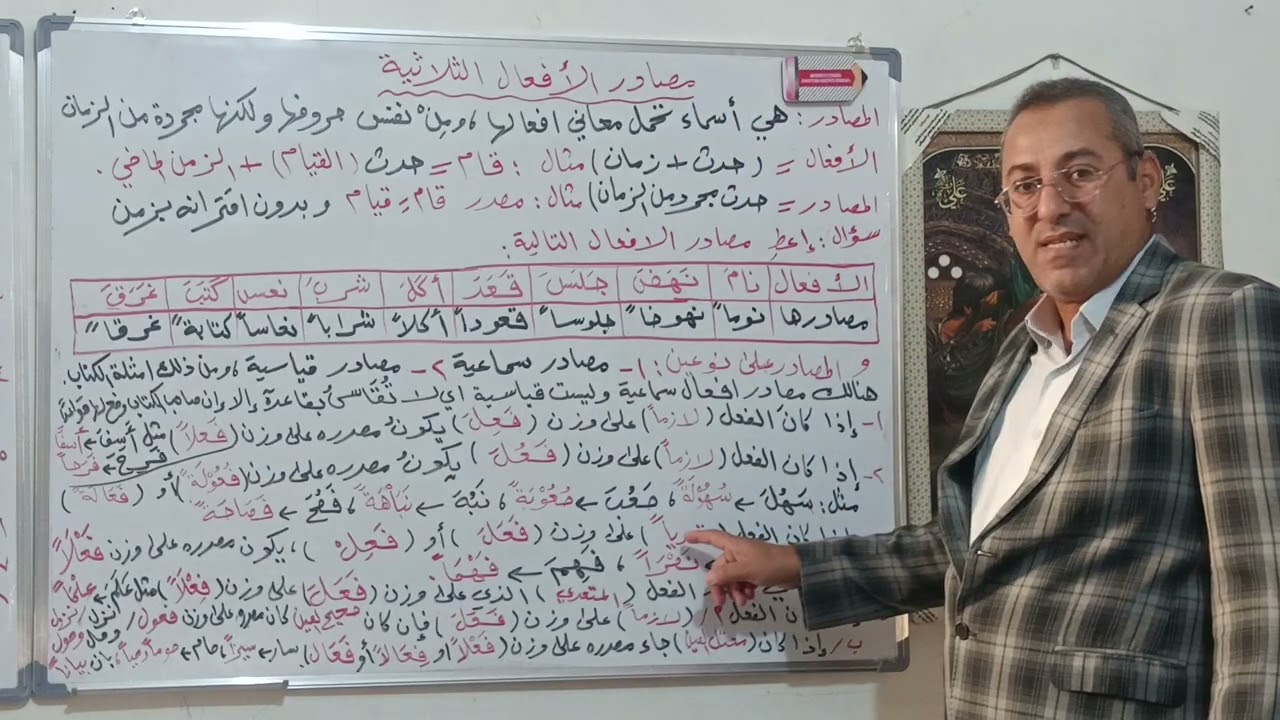 مصادر الأفعال الثلاثية
المصادر: هي أسماء تحمل معاني افعالها، ومن نفس حروفها ولكنها مجردة من الزمان
الأفعال = (حدث + زمان) مثال: قام = حدث (القيام) + الزمن الماضي.
المصادر = حدث مجرد من الزمان) مثال: مصدر قام = قيام وبدون اقترانه بزمن
سؤال: إعطِ مصادر الافعال التالية:
الأفعال نامَ نَهَضَ جلسَ قَعَدَ أكلَ شربَ نعسَ كتبَ غرقَ
مصادرها نوماً نهوضاً جلوساً قعوداً أكلاً شراباً نعاساً كتابةً غرقاً
المصادر على نوعين: ١- مصادر سماعية ٢- مصادر قياسية، ومن ذلك امثلة الكتاب.
هنالك مصادر افعال سماعية وليست قياسية اي لا تُقاسُ بقاعدة إلا إن صاحب الكتاب وضع لها قواعد
١- إذا كانَ الفعل (لازماً) على وزن (فَعِلَ) يكونُ مصدره على وزن (فَعَلاً) مثل أسِفَ ← أسفاً
فَرِحَ ← فرحاً
٢- إذا كان الفعل (لازماً) على وزن (فَعُلَ) يكونُ مصدره على وزن (فُعُولَة) أو (فَعَالَة)
مثل: سَهُلَ ← سُهُوْلَةً، صَعُبَ ← صُعُوْبَةً، نَبُهَ ← نَبَاْهَةً، فَصُحَ ← فَصَاحَةً
كان الفعل على وزن (فَعَلَ) أو (فَعِلَ)، يكون مصدره على وزن فَعْلاً
نَصْرَاً، فَهِمَ ← فَهْمَاً
الفعل (المتعدي) الذي على وزن (فَعِلَ) على وزن (فِعْلاً) مثل علِمَ علْماً
الفعل (لازماً) على وزن (فَعَلَ) فإن كان صحيح العين كان مصدره على وزن فعول / نزل نزول
ب/ إذا كان (معتل العين) جاء مصدره على وزن (فَعْلاً أو فِعَالاً أو فَعَال) سار ← سيراً صام ← صوماً وصياماً، بان بياناً
عليّ